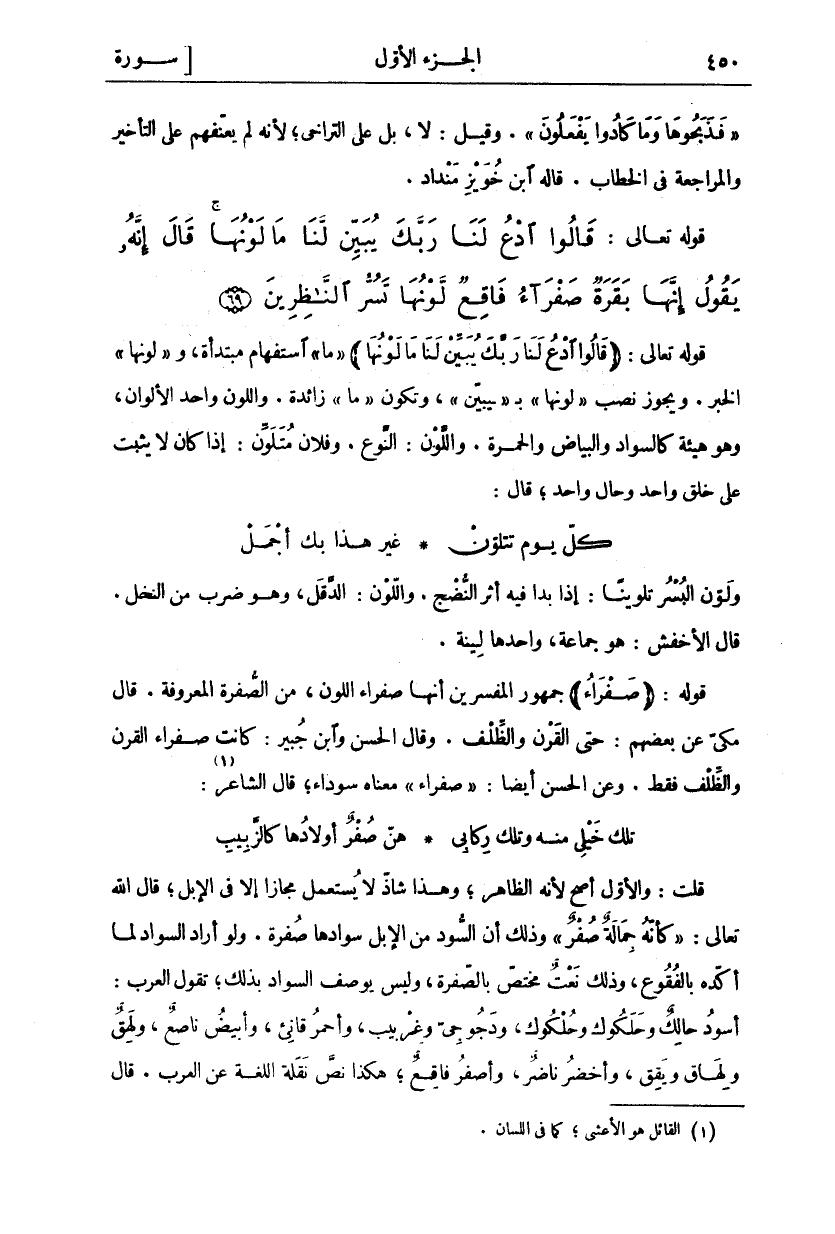 ٤٥٠ الجـــزء الأوّل [ ســـورة
« فَذَبَحُوهَا وَمَا كَادُوا يَفْعَلُونَ » . وقيـل : لا ، بل على التراخى؛ لأنه لم يعنّفهم على التأخير
والمراجعة فى الخطاب . قاله ٱبن خُوَيْزِ مَنْداد .
قوله تعـالى : قَالُوا ٱدْعُ لَنَـا رَبَّكَ يُبَيِّن لَّنَا مَا لَوْنُهَـا ۚ قَالَ إِنَّهُۥ
يَقُولُ إِنَّهَـا بَقَرَةٌ صَفْرَآءُ فَاقِـعٌ لَّوْنُهَا تَسُرُّ ٱلنَّـٰظِرِينَ ﴿٦٩﴾
قوله تعالى : ﴿ قَالُوا ٱدْعُ لَنَا رَبَّكَ يُبَيِّنْ لَنَا مَا لَوْنُهَا ﴾ « ما » ٱستفهام مبتدأة، و « لونها »
الخبر . ويجوز نصب « لونها » بـ « ـيبيّن » ، وتكون « ما » زائدة . واللون واحد الألوان،
وهو هيئة كالسواد والبياض والحمـرة . واللَّوْن : النَّوع . وفلان مُتَلَوِّن : إذا كان لا يثبت
على خلق واحد وحال واحد ؛ قال :
كلّ يـوم تتلوّنْ * غير هـذا بك أجْمَلْ
ولَوّن البُسْرُ تلوينًـا : إذا بدا فيه أثر النُّضْج . واللّوْن : الدَّقَل، وهـو ضرب من النخل .
قال الأخفش : هو جماعة، واحدها لِينة .
قوله : ﴿ صَـفْرَاءُ ﴾ جمهور المفسرين أنهـا صفراء اللون ، من الصُّفرة المعروفة . قال
مكىّ عن بعضهم : حتى القَرْن والظِّلْف . وقال الحسن وٱبن جُبير : كانت صـفراء القرن
والظِّلْف فقط . وعن الحسن أيضا : « صفراء » معناه سوداء؛ قال الشاعر (١) :
تلك خَيْلِى منـه وتلك رِكابِى * هنّ صُفْرٌ أولادُها كالزَّبِيبِ
قلت : والأوّل أصح لأنه الظاهـر ؛ وهـذا شاذّ لا يُستعمل مجازا إلا فى الإبل ؛ قال الله
تعالى : « كأنّهُ جِمَالَةٌ صُفْرٌ » وذلك أن السُّود من الإبل سوادها صُفرة . ولو أراد السواد لما
أكّده بالفُقُوع، وذلك نَعْتٌ مختصّ بالصّفرة ، وليس يوصف السواد بذلك؛ تقول العرب :
أسودُ حالِكٌ وحَلَكُوك وحُلْكُوك، ودَجُوجِىّ وغِرْبِيب، وأحمرُ قانِئ ، وأبيضُ ناصعٌ، ولَهِقٌ
ولِهَـاق ويَقِق ، وأخضرُ ناضرٌ ، وأصفرُ فاقِـعٌ ؛ هكذا نصَّ نَقَلة اللغـة عن العرب . قال
(١) القائل هو الأعشى ؛ كما فى اللسان .